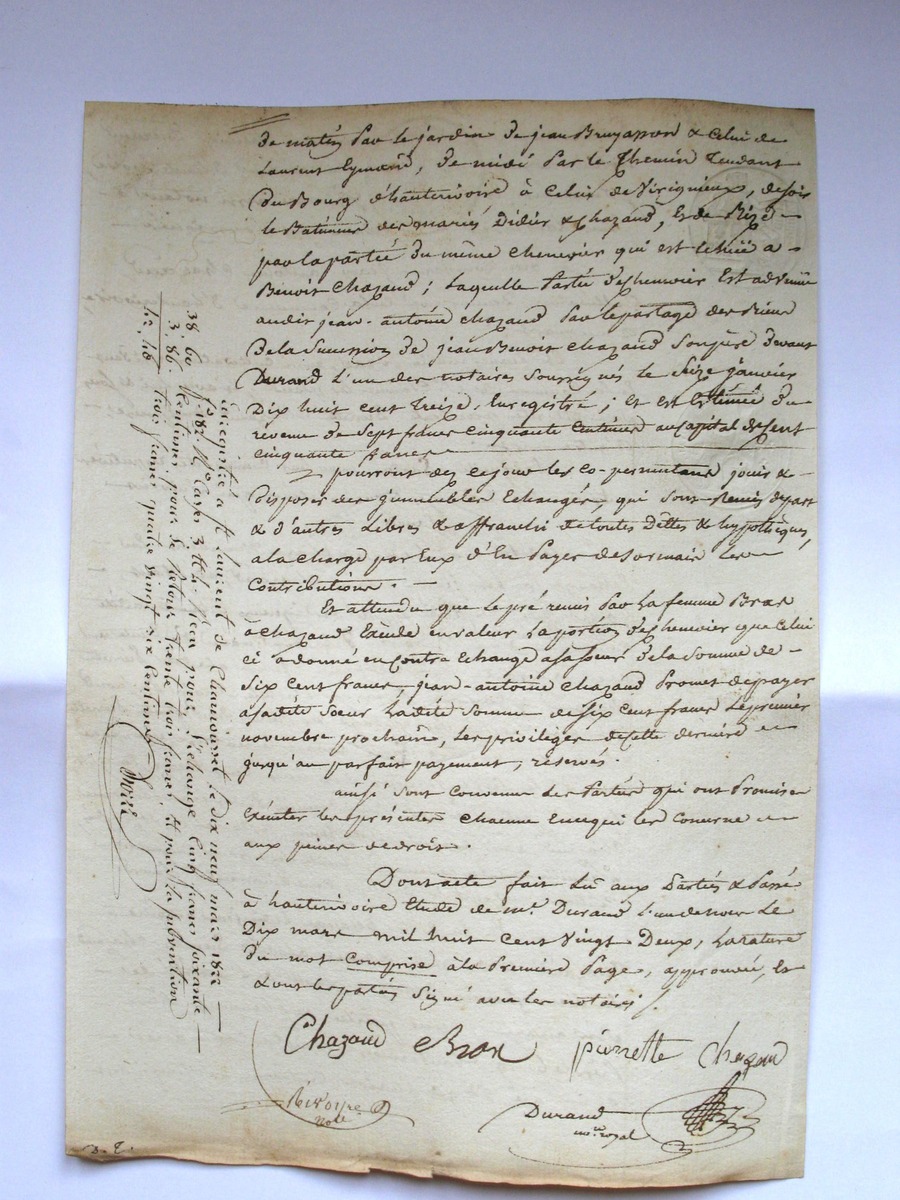 de matin par le jardin de jean Bruyasson & celui de
Laurent Eymard, de midi par le chemin tendant
du Bourg d'hauterivoire à celui de Virignieux, de soir
le Batiment des mariés Didier & Chazaud, et de Bize
par la partie du même chenevier qui est échüe a
Benoit Chazaud; laquelle partie de chenevier est advenüe
audit jean-antoine Chazaud par le partage des biens
de la succession de jean Benoit Chazaud son père devant
Durand l'un des notaires soussignés le seize janvier
Dix huit cent treize, Enregistré; et est Estimée du
revenu de sept francs cinquante centimes au capital de cent
cinquante francs
pourront des ce jour les co-permutans jouir &
disposer des immeubles Echangés, qui sont remis de part
& d'autres libres & affranchi de toutes dettes & hypothèques,
a la charge par Eux d'En payer desormais les
contributions.
Et attendu que le pré remis par la femme Brax
à Chazaud Excède en valeur la portion de chenevier que celui
ci a donné en contre Echange a sa soeur de la somme de
six cent francs, jean-antoine Chazaud promet de payer
a sa dite soeur la dite somme de six cent francs le premier
novembre prochain, les privileges de cette derniere
jusqu'au parfait payement, réservés.
ainsi sont convenu les parties qui ont promis
Exécuter les présentes chacune en ce qui les concerne
aux peines de droit.
Dont acte fait lu aux parties & passé
à hauterivoire Etude de Me. Durand l'un de nous le
Dix mars mil huit cent vingt Deux, la rature
du mot Comprise à la premiere page, approuvée, et
& ont les parties signé avec les notaires
Chazaud Brax pierrette Chazaud
Rivoyre
not.
Durand
nre. royal
Enregistré a St. laurent de Chamousset le dix neuf mars 1822
fo. 182 Ro. Cases 3 et 4 reçu pour l'échange cinq francs soixante
centimes pour le retour trente trois francs, et pour la subvention
trois francs quatre vingt six centimes
38, 60
3, 86
42, 46